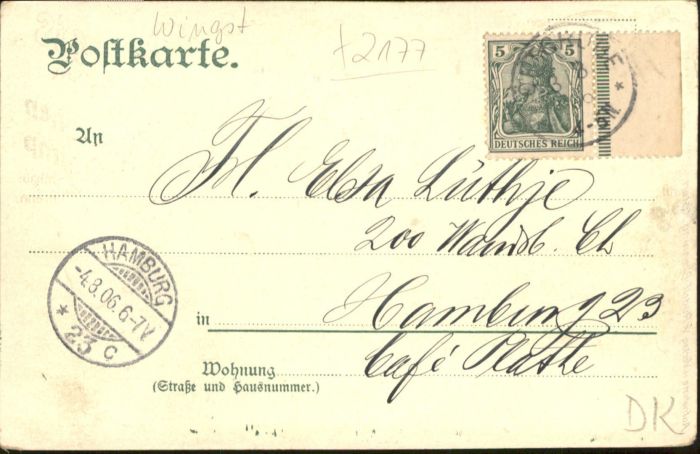 Wingst
Postkarte.
+2177
5 5
DEUTSCHES REICH
An
Frl. Elsa Lüthje
200 Wandsb. Ch
HAMBURG
-4.8.06.6-7V
* 23 c
in Hamburg 23
Café Platte
Wohnung
(Straße und Hausnummer.)
DK